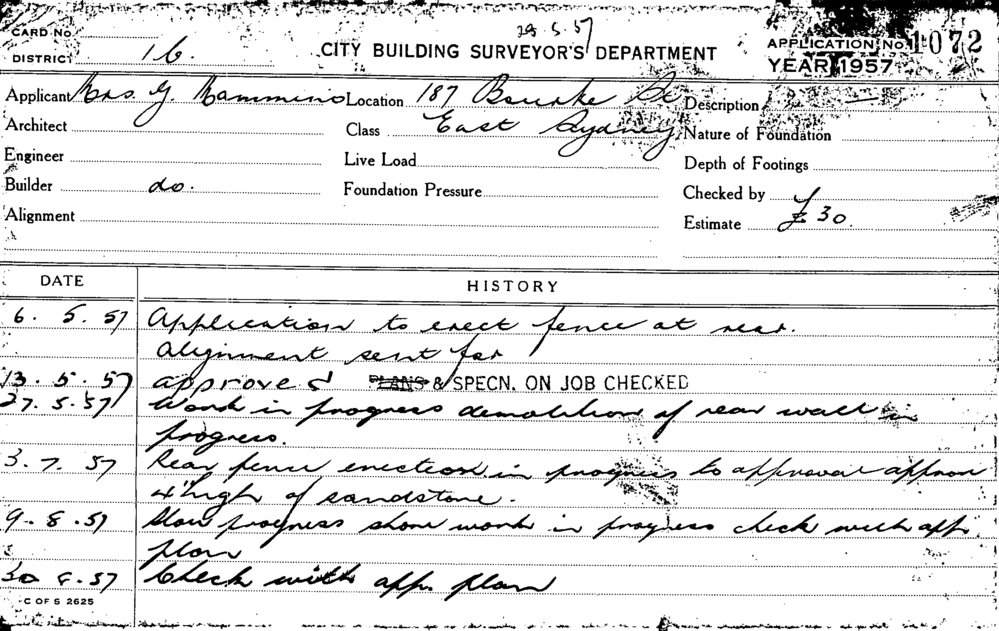 29.5.57
CARD No.
DISTRICT 16. CITY BUILDING SURVEYOR'S DEPARTMENT
APPLICATION No. 1072
YEAR 1957
Applicant Mrs. G. Mammino Location 187 Bourke St Description
Architect Class East Sydney Nature of Foundation
Engineer Live Load Depth of Footings
Builder do. Foundation Pressure Checked by
Alignment Estimate £30.
DATE HISTORY
6. 5. 57 Application to erect fence at rear.
alignment sent for
13. 5. 57 approved PLANS & SPECN. ON JOB CHECKED
27. 5. 57 Work in progress demolition of rear wall in
progress.
3. 7. 57 Rear fence erection in progress to approval approx
4" high of sandstone.
9. 8. 57 Slow progress stone work in progress check with app.
plan
30 8. 57 Check with app. plan
C OF S 2625